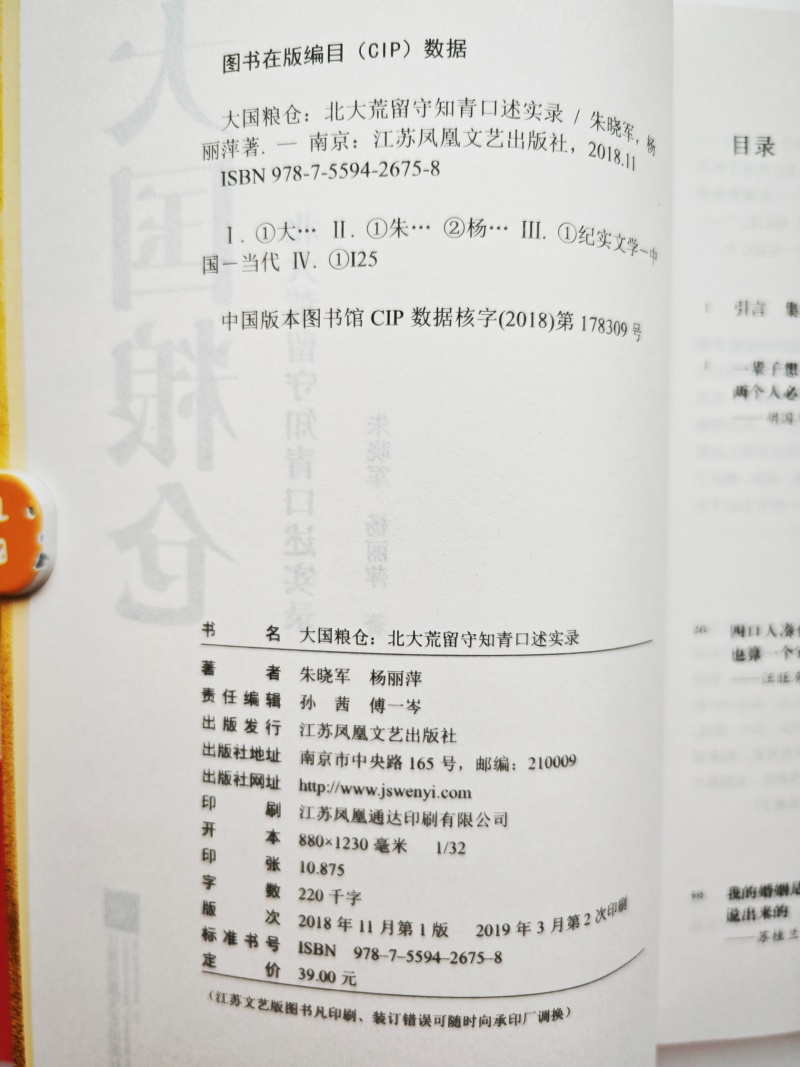 图书在版编目（CIP）数据
大国粮仓：北大荒留守知青口述实录 / 朱晓军，杨
丽萍著. — 南京：江苏凤凰文艺出版社，2018.11
ISBN 978-7-5594-2675-8
Ⅰ．①大… Ⅱ．①朱… ②杨… Ⅲ．①纪实文学－中
国－当代 Ⅳ．①I25
中国版本图书馆 CIP 数据核字(2018)第 178309 号
书 名 大国粮仓：北大荒留守知青口述实录
著 者 朱晓军 杨丽萍
责任编辑 孙 茜 傅一岑
出版发行 江苏凤凰文艺出版社
出版社地址 南京市中央路 165 号，邮编：210009
出版社网址 http://www.jswenyi.com
印 刷 江苏凤凰通达印刷有限公司
开 本 880×1230 毫米 1/32
印 张 10.875
字 数 220 千字
版 次 2018 年 11 月第 1 版 2019 年 3 月第 2 次印刷
标准书号 ISBN 978-7-5594-2675-8
定 价 39.00 元
（江苏文艺版图书凡印刷、装订错误可随时向承印厂调换）
目录
引言
一辈子
两个人必
四口人
也 一个
我的婚姻是
说出来的
——苏桂兰